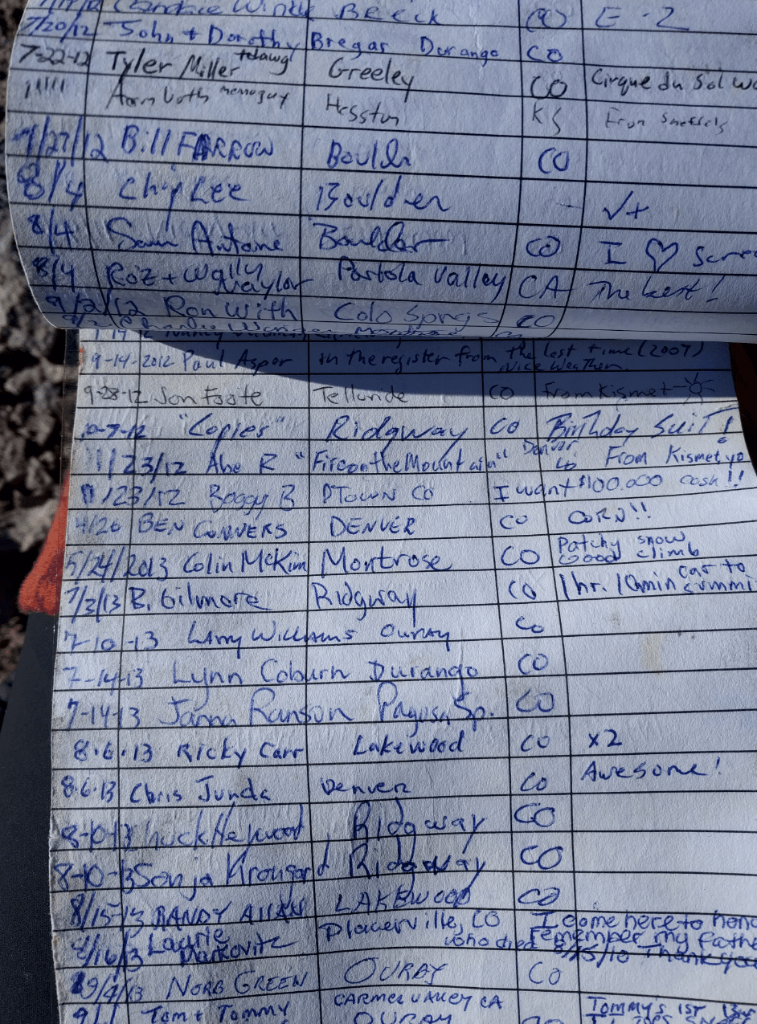 Beeck CO E-2
7/20/12 John + Dorothy Bregar Durango CO
7-22-12 Tyler Miller Greeley CO Cirque du Sol
Hesston KS From Sneffels
7/27/12 Bill FARROW Boulder CO
8/4 Chip Lee Bouldren √+
8/4 Sam Antoine Boulder CO I ♡
8/4 Roz + Wally Portola Valley CA The best!
9/2/12 Ron With Colo Spngs CO
9-14-2012 Paul in the register from the last time (2007)
Nice Weather
9-28-12 Jon Foote Telluride CO From Kismet
10-7-12 "Copies" Ridgway CO Birthday Suit!
11/23/12 Abe R "Fire on the Mountain" Denver CO From Kismet yo
11/23/12 Boogy B DTOWN CO I want $100.000 cash!!
4/20 BEN CONVERS DENVER CO CORN!!
5/24/2013 Colin McKim Montrose CO Patchy snow
Good climb
7/3/13 B. Gilmore Ridgway CO 1 hr. 10min car to
summi
7-10-13 Larry Williams Ouray CO
7-14-13 Lynn Coburn Durango CO
7-14-13 Janna Ranson Pagosa Sp. CO
8.6.13 Ricky Carr Lakewood CO x2
8.6.13 Chris Junda Denver CO Awesome!
8-10-13 Ridgway CO
8-10-13 Sonja Ridgway CO
8/15/13 RANDY ALLAN LAKEWOOD CO
Laurie Markovitz Placerville, CO I come here to
remember my
who died 8/5/10 Thank you
NORB GREEN OURAY CO
Tom + Tommy CARMEL VALLEY CA TOMMYS 1ST
OURAY